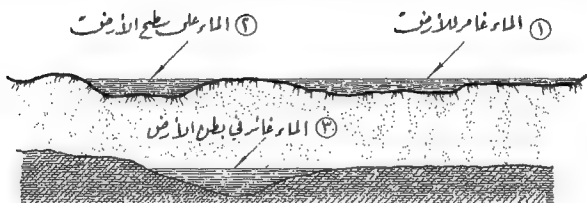 ① الماء غامر للأرض
② الماء على سطح الأرض
③ الماء غائر في بطن الأرض